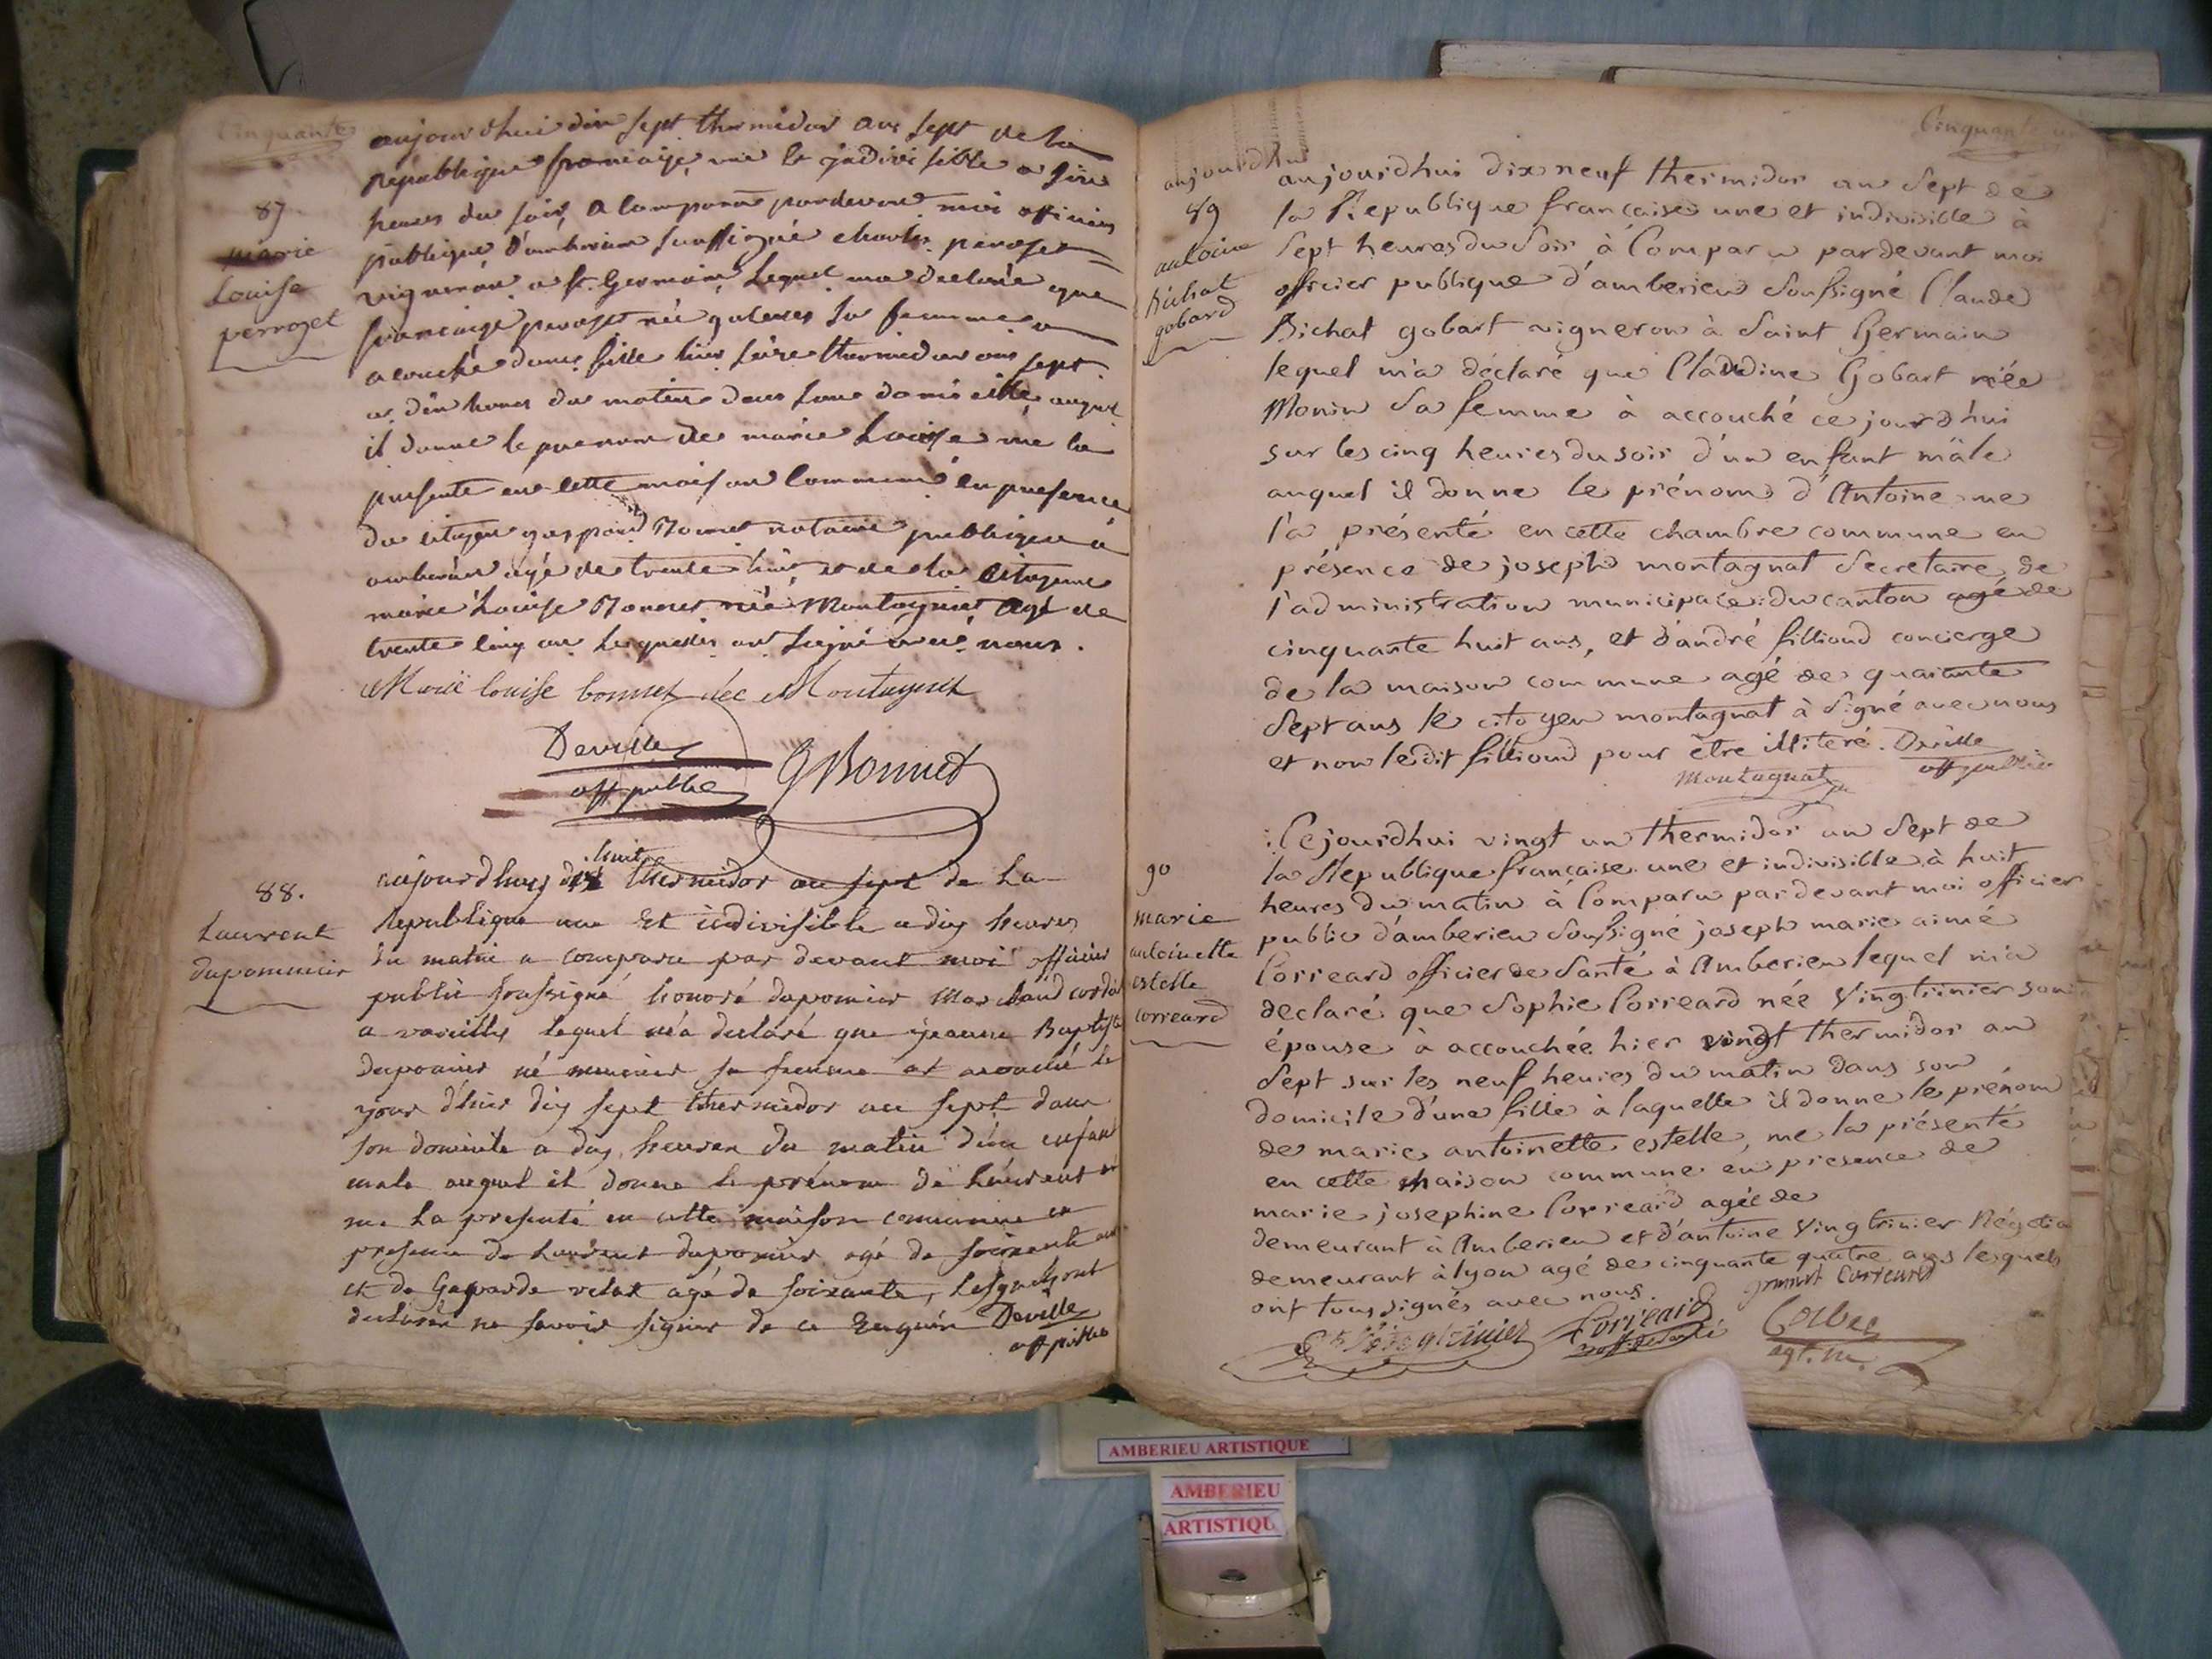 Cinquante
87
marie
Louise
perrozet
aujourdhui dix sept thermidor an sept de la
republique francaise une et indivisible a six
heures du soir, a comparu pardevant moi officier
publique d'amberieu soussigné charles peroset
vigneron a st. Germain lequel ma declaré que
francoise peroset née sa femme a
acouché dune fille hier seize thermidor an sept
a dix heures du matin dans son domicille auquel
il donne le prenom de marie Louise me la
presenté en cette maison commune en presence
du citoyen gaspard Bonnet notaire publique a
amberieu agé de trente huit et de la citoyenne
marie Louise Bonnet née Montagnat agé de
trente cinq an lesquelles on signé avec nous.
Marie louise bonnet née Montagnat
Deville
off public
GBonnet
88.
Laurent
dupommier
huit
aujourdhuy dix thermidor an sept de La
Republique une Et indivisible a dix heures
du matin a comparu par devant moi officier
public soussigné honoré dupomier Marchand
a vareilles lequel m'a declaré que jeanne Baptiste
dupomier né sa femme at acouché le
jour d'hier dix sept thermidor an sept dans
son domicile a dix heures du matin d'un enfant
male auquel il donne le prénom de Laurent et
me La presenté en cette maison commune en
presence de Laurent dupomier agé de soixante ans
et de Gasparde velat agé de soixante, Lesquels ont
declaré ne savoir signer de ce Enquis Deville
off public
Cinquante un
aujourdhu
89
antoine
Bichat
gobard
aujourdhui dix neuf thermidor an sept de
la République française une et indivisible à
sept heures du soir à Comparu pardevant moi
officier publique d'amberieu soussigné Claude
Bichat gobart vigneron à Saint Germain
lequel m'a déclaré que Claudine Gobart née
Monin sa femme à accouché ce jourd'hui
sur les cinq heures du soir d'un enfant mâle
auquel il donne le prénom d'Antoine me
l'a présenté en cette chambre commune en
présence de joseph montagnat Secretaire de
l'administration municipale du canton agé de
cinquante huit ans, et d'andré filliond concierge
de la maison commune agé de quarante
sept ans le citoyen montagnat à signé avec nous
et non ledit filliond pour être illiteré. Deville
montagnat off public
90
marie
antoinette
estelle
correard
Cejourdhui vingt un thermidor an sept de
la République française une et indivisible à huit
heures du matin à Comparu pardevant moi officier
public d'amberieu soussigné joseph marie aimé
Correard officier de Santé à Amberieu lequel m'a
declaré que Sophie Correard née Vingtrinier son
épouse à accouchée hier vingt thermidor an
sept sur les neuf heures du matin dans son
domicile d'une fille à laquelle il donne le prénom
de marie antoinette estelle, me la présenté
en cette maison commune en presence de
marie josephine Correard agée de
demeurant à Amberieu et d'antoine Vingtrinier Négotia
demeurant à lyon agé de cinquante quatre ans lesquels
ont tous signés avec nous.
Correard
Vingtrinier
Correard
off. de santé
agt. m.
AMBERIEU ARTISTIQUE
AMBERIEU
ARTISTIQU